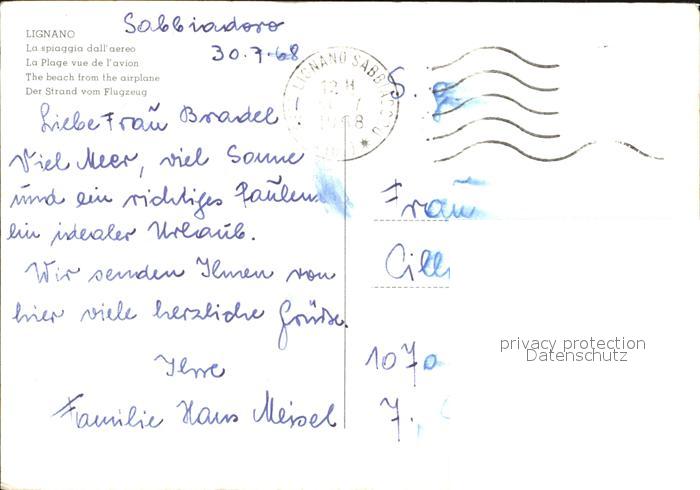 Sabbiadoro
30.7.68
LIGNANO
La spiaggia dall'aereo
La Plage vue de l'avion
The beach from the airplane
Der Strand vom Flugzeug
LIGNANO SABBIADORO
12 H
Liebe Frau Bradel
Viel Meer, viel Sonne
und ein richtiges Faulen.
Ein idealer Urlaub.
Wir senden Ihnen von
hier viele herzliche Grüße.
Ihre
Familie Hans Meisel
Frau
Cilli
1070
7.
privacy protection
Datenschutz